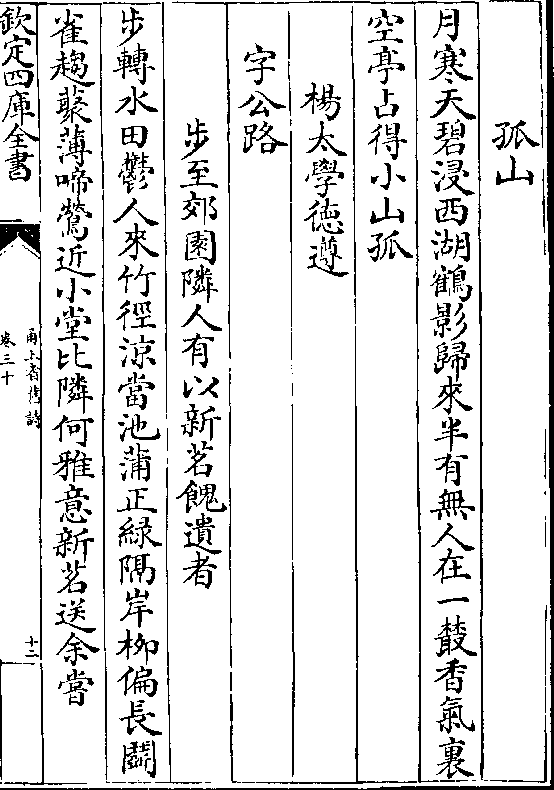 孤山
月寒天碧浸西湖鶴影歸來半有無人在一䕺香氣裏
空亭占得小山孤
楊太學德遵
字公路
步至郊園隣人有以新茗餽遺者
步轉水田鬱人來竹徑涼當池蒲正綠隔岸栁偏長鬭
雀趨藂薄啼鶯近小堂比隣何雅意新茗送余嘗
欽定四庫全書
甬上耆舊詩
卷三十
十二